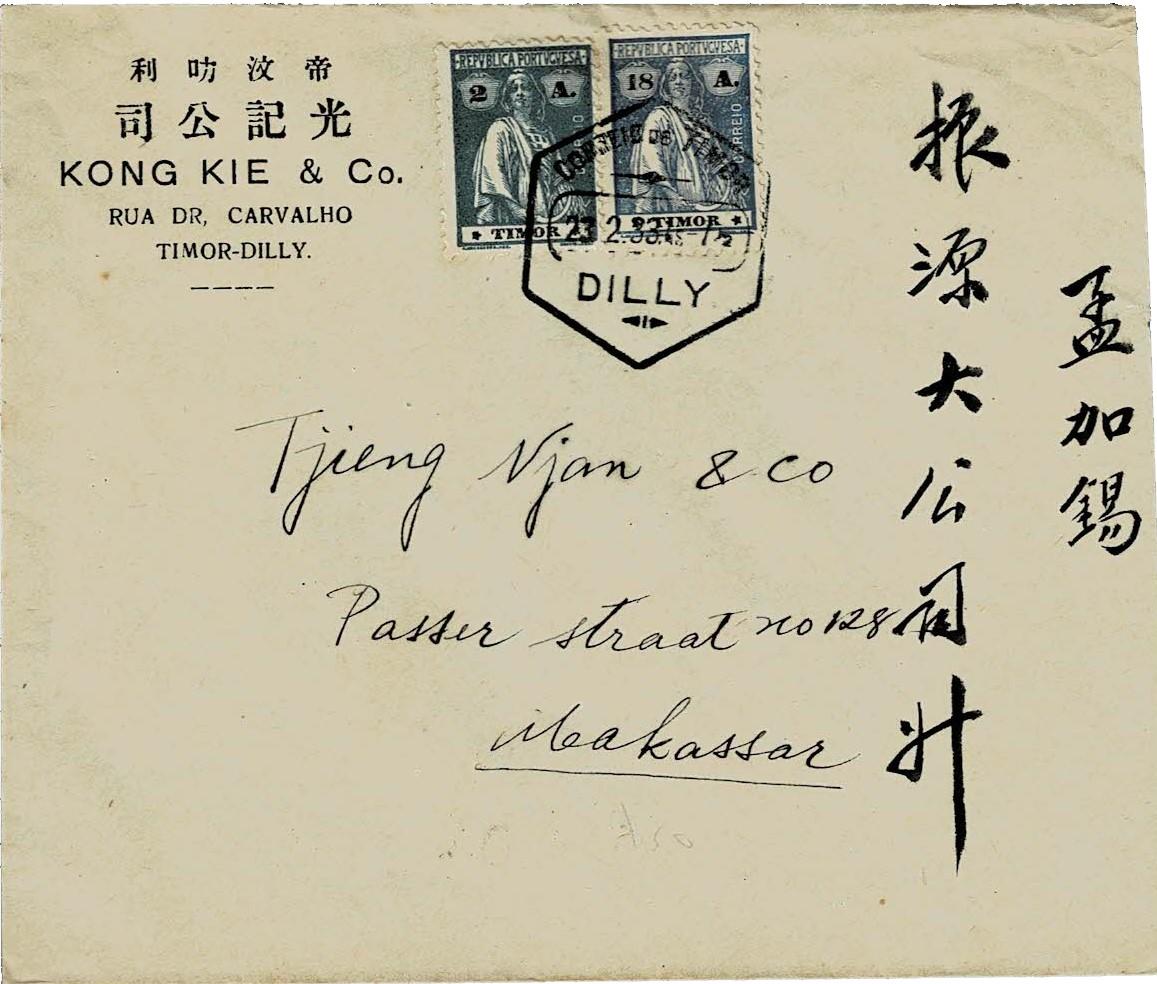 帝汶叻利
光記公司
KONG KIE & Co.
RUA DR, CARVALHO
TIMOR-DILLY.
REPVBLICA PORTVGVESA
2 A.
TIMOR
REPVBLICA PORTVGVESA
18 A.
CORREIO
TIMOR
CORREIO DE TIMOR
23 2.33
DILLY
1
孟加錫
振源大公司升
Tjieng Njan & co
Passer straat no 128
Makassar